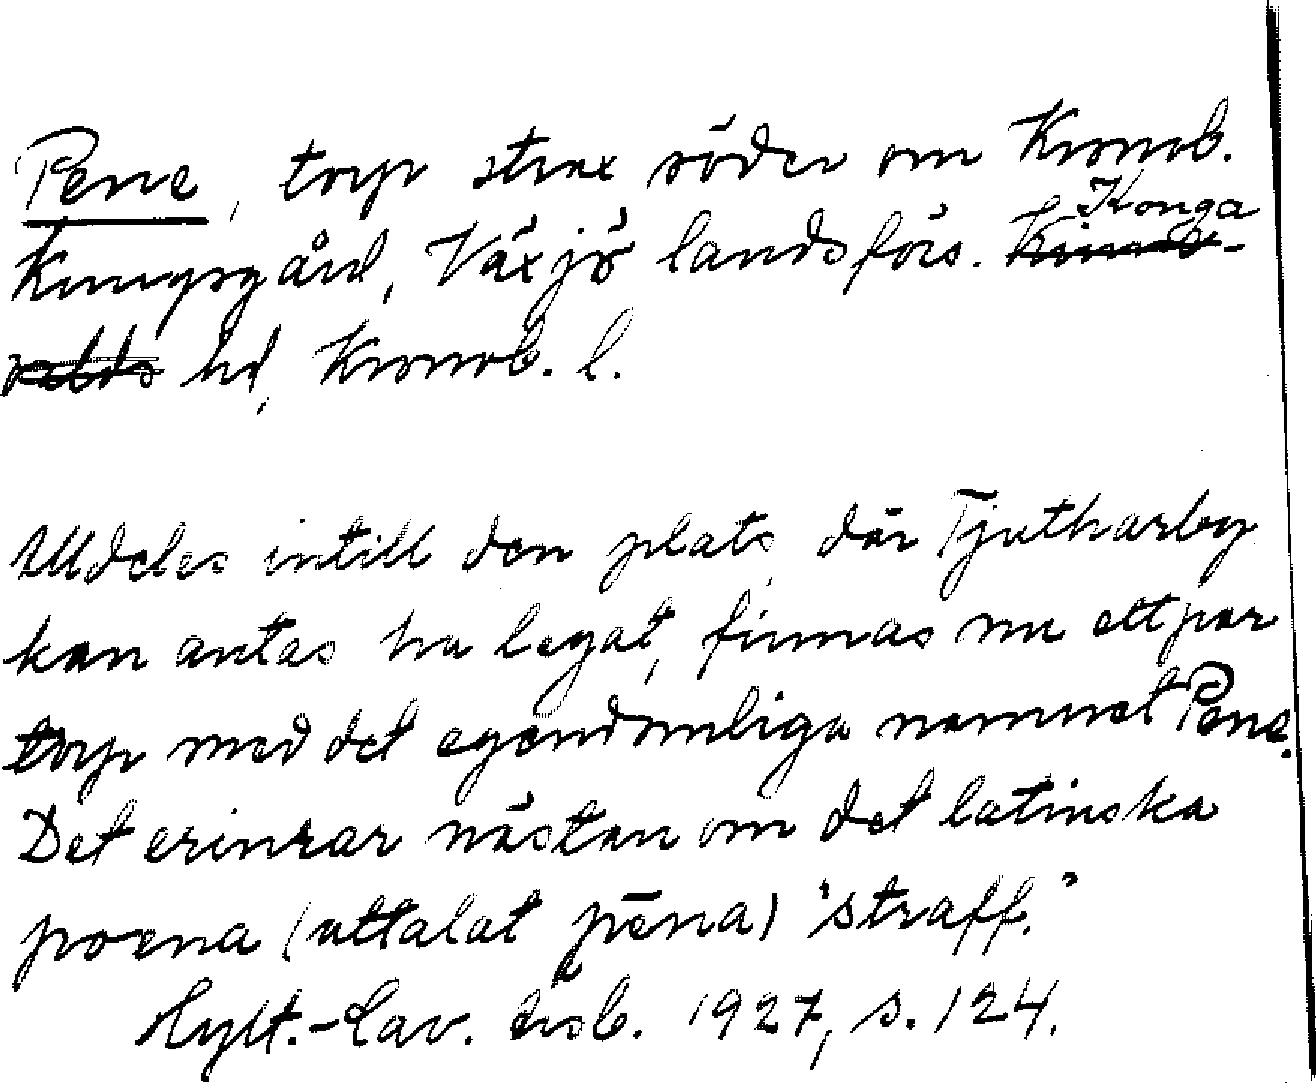 Pene, torp strax söder om Kronob.
Kungsgård, Växjö landsförs. Konga
hd, Kronob. l.
Alldeles intill den plats, där Tjutharby
kan antas ha legat, finnas nu ett par
torp med det egendomliga namnet Pene.
Det erinrar nästan om det latinska
poena (uttalat pēna) 'straff.'
Hylt.-Cav. årsb. 1927, s. 124.